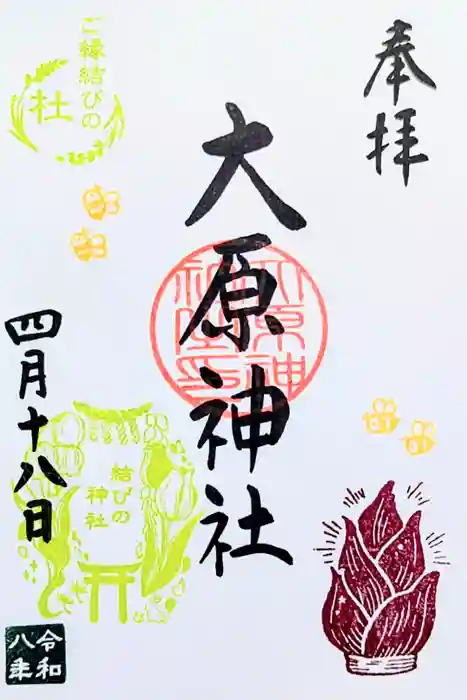 奉拝
大原神社
大原神社之印
ご縁結びの
杜
四月十八日
結びの
神社
令和
八年